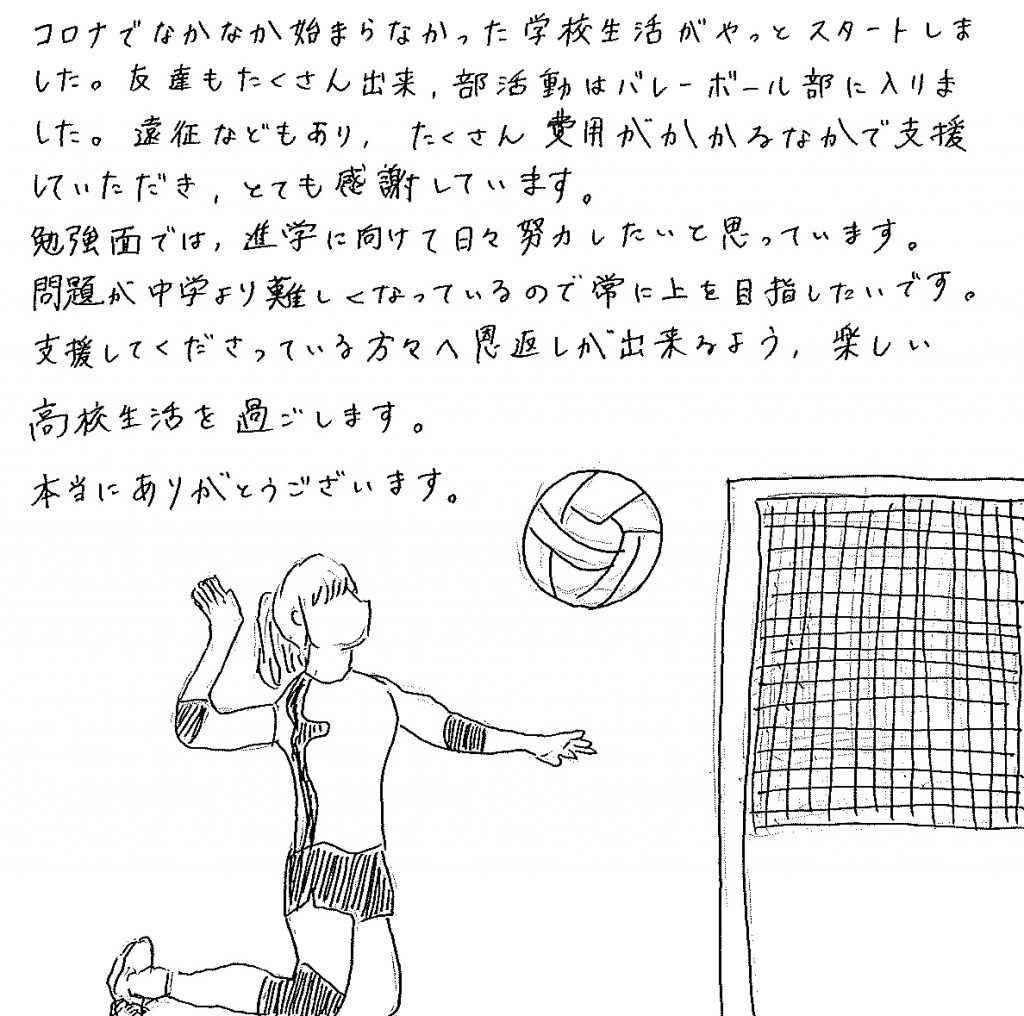 コロナでなかなか始まらなかった学校生活がやっとスタートしま
した。友達もたくさん出来,部活動はバレーボール部に入りま
した。遠征などもあり,たくさん費用がかかるなかで支援
していただき,とても感謝しています。
勉強面では,進学に向けて日々努力したいと思っています。
問題が中学より難しくなっているので常に上を目指したいです。
支援してくださっている方々へ恩返しが出来るよう,楽しい
高校生活を過ごします。
本当にありがとうございます。